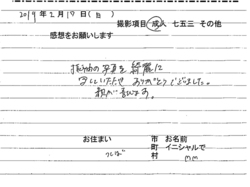 2019年2月17日(日)
撮影項目 成人 七五三 その他
感想をお願いします
振袖の写真を綺麗に
写していただき ありがとうございました。
親が喜びます。
お住まい 市 お名前
町 イニシャルで
つくば 村 mm